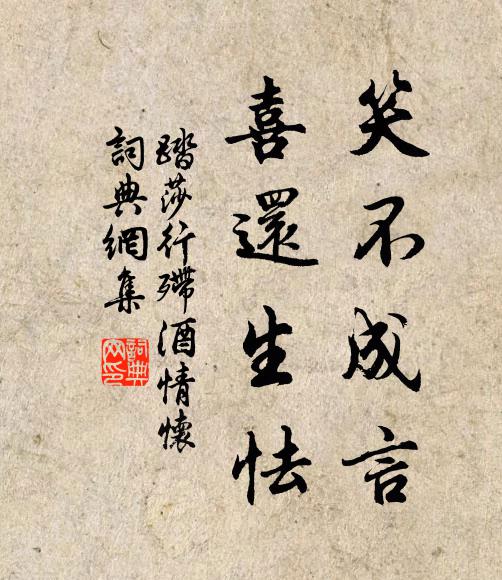 笑不成言
喜還生怯
踏莎行殢酒情懷
詞典網集
詞典
网印